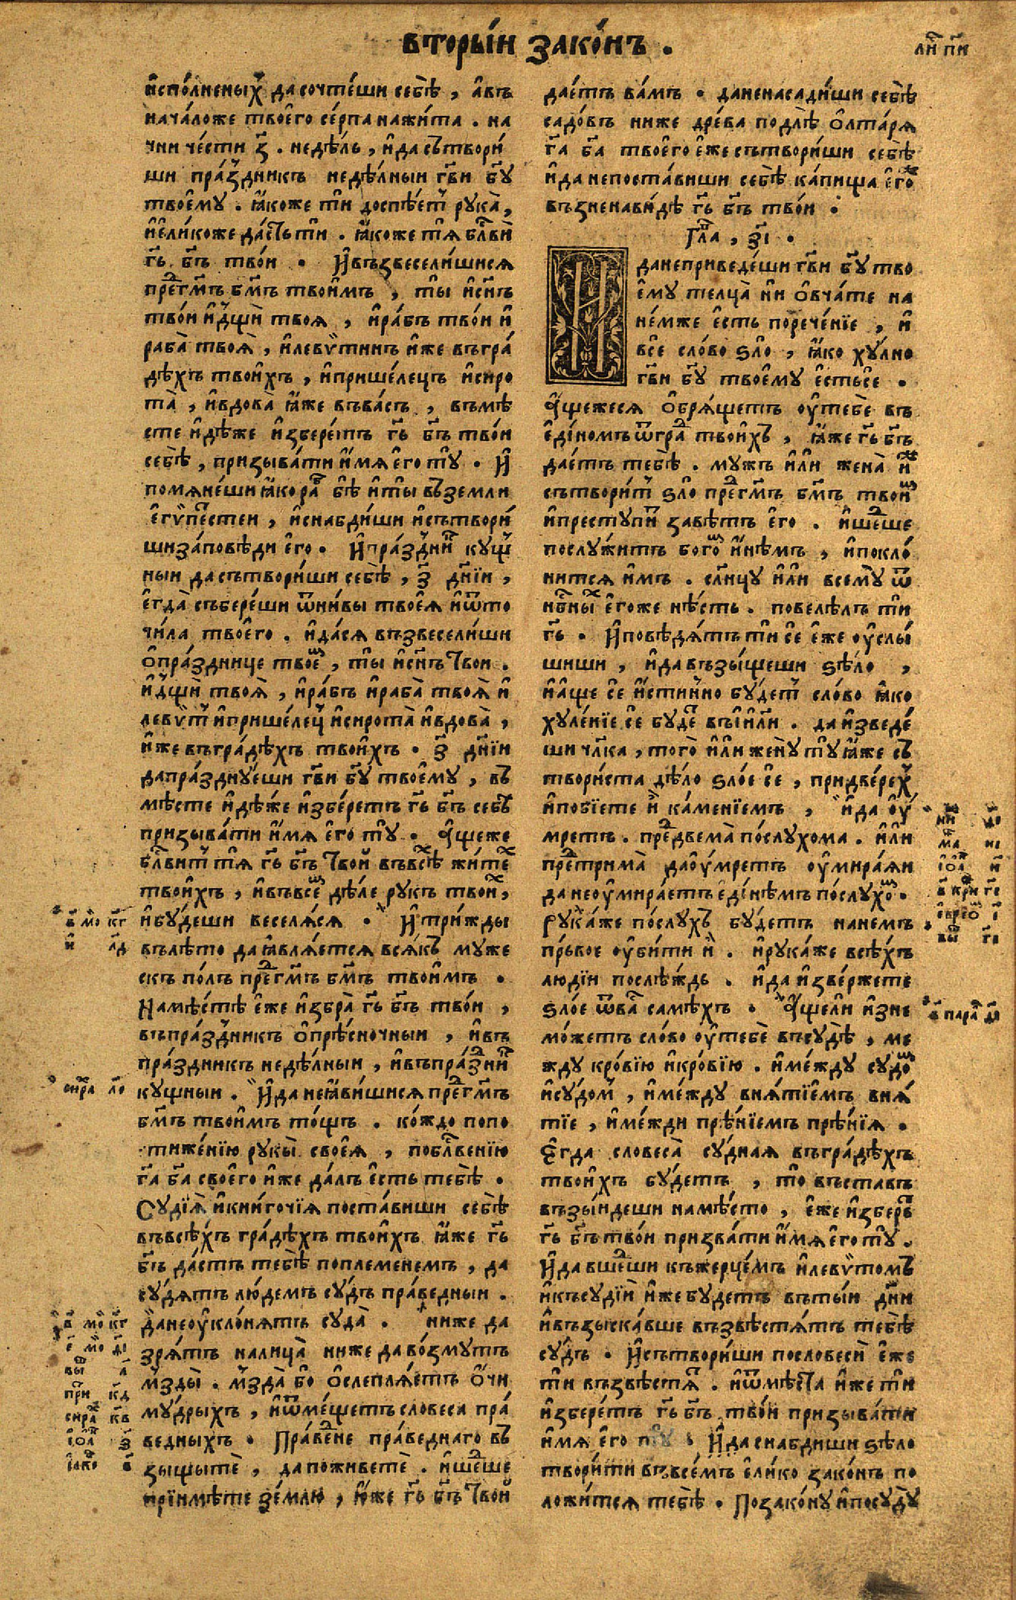 вторы́й зако́нъ .
и҆спо́лненыⷯ да сочте́ши себѣ̀ , а҆въ
нача́ло же твоего̀ се́рпа на жи́та . на
чни че́сти з҃ . недѣ́ль , и҆ да сътвори́
ши пра́здникъ недѣ́лныи гв҃и бг҃у
твоемꙋ̀ . ꙗ҆́коже ти доспѣ́етъ рꙋка̀ ,
и҆ е҆ли́коже да́стъ ти . ꙗ҆́коже тѧ̀ блг҃ви́
гь҃ бг҃ъ тво́и . И҆ възвесели́шисѧ
преⷣ гм҃ъ бг҃мъ твои́мъ , ты̀ и҆ сн҃ъ
тво́и и҆ дщѝ твоѧ̀ , и҆ ра́бъ тво́и и҆
раба̀ твоѧ̀ , и҆ леѵи́тинъ и҆́же въ гра́
дѣхъ твои́хъ , и҆ прише́лецъ и҆ сиро
та̀ , и҆ вдова̀ ꙗ҆́же въ ва́съ , въ мѣ́
сте и҆дѣ́же и҆збере́тъ гь҃ бг҃ъ тво́и
себѣ̀ , призыва́ти и҆́мѧ е҆го̀ тꙋ̀ . И҆
помѧне́ши ꙗ҆́ко раⷠ бѣ̀ и҆ ты̀ въ земли
е҆гѵ́петстеи , и҆ снабди́ши и҆ сътвори́
ши за́повѣди е҆го̀ . И҆ пра́здниⷦ кꙋщ
ныи да сътвори́ши себѣ̀ , з҃ дн҃іи ,
е҆гда̀ събере́ши ѿ ни́вы твоеѧ̀ и҆ ѿ то
чи́ла твоего̀ . и҆ да сѧ възвесели́ши
о҆ пра́зднице твоеⷨ , ты̀ и҆ сн҃ъ тво́и .
и҆ дщѝ твоѧ̀ , и҆ ра́бъ и҆ раба̀ твоѧ̀ и҆
леѵи́тъ и҆ прише́лецъ и҆ сирота̀ и҆ вдова̀ ,
и҆́же въ гра́дѣхъ твои́хъ . з҃ дн҃іи
да пра́зднꙋеши гв҃и бг҃у твоемꙋ̀ , въ
мѣ́сте и҆дѣ́же и҆збере́тъ гь҃ бг҃ъ себѣ̀
призыва́ти и҆́мѧ е҆го̀ тꙋ̀ . А҆́ще же
блг҃ви́тъ тѧ̀ гь҃ бг҃ъ тво́й въ всѣ́хъ жи́теⷯ
твои́хъ , и҆ въ всеⷨ дѣ́ле рꙋ́къ твоиⷯ ,
и҆ бꙋ́деши веселѧ́сѧ . И҆ три́жды
въ лѣ́то да ꙗ҆влѧ́етсѧ всѧ́къ мꙋже
скъ по́лъ преⷣ гм҃ъ бг҃мъ твои́мъ .
На мѣ́стѣ е҆́же и҆збра̀ гь҃ бг҃ъ тво́и ,
въ пра́здникъ о҆прѣ́сночныи , и҆ въ
пра́здникъ недѣ́лныи , и҆ въ пра́здниⷦ
кꙋщныи . И҆ да не ꙗ҆ви́шисѧ преⷣ гм҃ъ
бг҃мъ твои́мъ то́щъ . ко́ждо по по
тиже́нїю рꙋкы̀ своеѧ̀ , по блг҃ве́нїю
га҃ ба҃ своего̀ и҆́же да́лъ е҆́сть тебѣ̀ .
Сꙋдїѧ̀ и҆ книго́чїѧ поста́виши себѣ̀
въ всѣ́хъ гра́дѣхъ твои́хъ ꙗ҆́же гь҃
бг҃ъ да́стъ тебѣ̀ по племене́мъ , да
сꙋ́дѧтъ лю́демъ сꙋ́дъ пра́ведныи .
да не ѹ҆кло́нѧтъ сꙋда̀ . ниже да
зрѧ́тъ на лица̀ ниже да во́змꙋтъ
мзды̀ . мзда̀ бо о҆слеплѧ́етъ о҆́чи
мꙋ́дрыхъ , и҆ ѿме́щетъ словеса пра́
ведныхъ . Пра́вене пра́веднаго въ
зыщы́те , да поживе́те . и҆ шеⷣше
прїи́мѣте зе́млю , ю҆́же гь҃ бг҃ъ тво́й
дае́тъ ва́мъ . да не насади́ши себѣ̀
садо́въ ниже дре́ва по длѣ̀ о҆лтарѧ̀
га҃ ба҃ твоего̀ е҆́же сътвори́ши себѣ̀
и҆ да не поста́виши себѣ̀ ка́пища е҆гоⷤ
възненави́дѣ гь҃ бг҃ъ тво́и .
Глаⷡ҇ , з҃і .
И҆ да не приведе́ши гв҃и бг҃у тво
емꙋ̀ телца̀ ни о҆вча́те на
не́мже е҆́сть порече́нїе , и҆
всѐ сло́во ѕло̀ , ꙗ҆́ко хꙋ́лно
гв҃и бг҃у твоемꙋ̀ е҆́сть сѐ .
А҆́ще же сѧ о҆брѧ́щетъ ѹ҆ тебѐ въ
е҆ди́номъ ѿ граⷣ твои́хъ , ꙗ҆́же гь҃ бг҃ъ
дае́тъ тебѣ̀ . мꙋ́жъ и҆лѝ жена̀ и҆ⷤ
сътвори́тъ ѕло̀ преⷣ гм҃ъ бг҃мъ твоиⷨ
и҆ престꙋпи́тъ завѣ́тъ е҆го̀ . и҆ шеⷣше
послꙋ́житъ богоⷨ и҆нѣ́мъ , и҆ покло́
нитсѧ и҆́мъ . сл҃нцꙋ и҆лѝ всемꙋ̀ ѿ
нбⷭ҇ныⷯ е҆го́же нѣ́сть . повелѣ́лъ ти
гь҃ . И҆ повѣ́дѧтъ ти сѐ е҆́же ѹ҆слы́
шиши , и҆ да възы́щеши ѕѣло̀ ,
и҆ а҆́ще сѐ и҆́стинно бꙋ́детъ сло́во ꙗ҆́ко
хꙋле́нїе сѐ бꙋ́деⷮ въ і҆и҃ли . да и҆зведе́
ши чл҃ка , того̀ и҆лѝ женꙋ̀ тꙋ̀ ꙗ҆́же съ
твори́ста дѣ́ло ѕло́е сѐ , при две́реⷯ
и҆ побїе́те и҆̀ ка́менїемъ , и҆ да ѹ҆́
мретъ . преⷣ двема̀ по́слꙋхома . и҆лѝ
преⷣ трима̀ да ѹ҆́мретъ ѹ҆мира́ѧи
да не ѹ҆мира́етъ е҆ди́немъ по́слꙋхоⷨ .
Рꙋка́ же по́слꙋхъ бꙋ́детъ на немъ
пръвое ѹ҆би́ти и҆̀ . и҆ рꙋка́же всѣ́хъ
люди́и послѣ́ждь . и҆ да и҆зве́ржете
ѕло́е ѿ ва́съ самѣ́хъ . А҆́ще ли и҆зне
мо́жетъ сло́во ѹ҆ тебѐ въ сꙋдѣ̀ , ме
ждꙋ кро́вїю и҆ кро́вїю . и҆ ме́ждꙋ сꙋдоⷨ
и҆ сꙋдо́м , и҆ ме́ждꙋ внѧ́тїемъ внѧ́
тїе , и҆ ме́жди прѣ́нїемъ прѣ́нїѧ .
Е҆гда словеса̀ сꙋ́днаѧ въ гра́дѣхъ
твои́хъ бꙋ́детъ , то̀ въста́въ
възы́идеши на мѣ́сто , е҆́же и҆збере́ⷮ
гь҃ бг҃ъ тво́и призва́ти и҆́мѧ е҆го̀ тꙋ̀ .
И҆ да вшеⷣши къ жерце́мъ и҆ леѵи́томъ
и҆ къ сꙋдїи́ и҆́же бꙋ́детъ въ ты́и дн҃и
и҆ възыска́вше възвѣстѧ́тъ тебѣ̀
сꙋ́дъ . И҆ сътвори́ши по словесѝ е҆́же
ти възвѣстѧ́ⷮ . и҆ ѿ мѣ́ста и҆́же ти
и҆збере́тъ гь҃ бг҃ъ тво́и призыва́ти
и҆́мѧ е҆го̀ тꙋ̀ . И҆ да снабдиши ѕѣло
твори́ти въ всѣ́мъ е҆ли́ко зако́нъ по
ложи́тсѧ тебѣ̀ . По зако́нꙋ и҆ по сꙋдꙋ̀